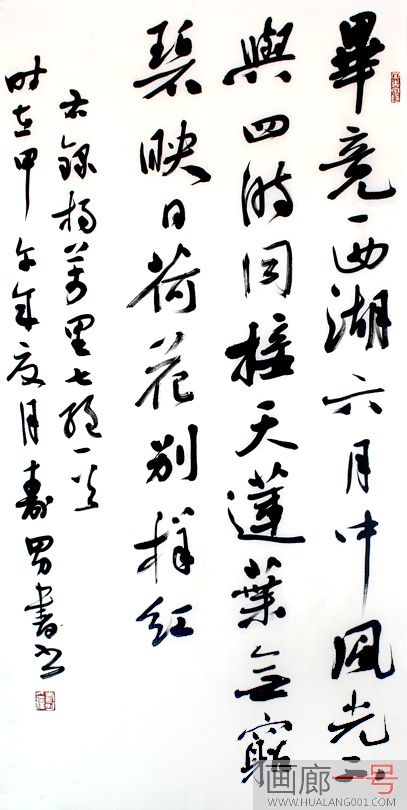 畢竟西湖六月中風光不
與四時同接天蓮葉無窮
碧映日荷花別樣紅
右錄楊萬里七絕一首
时在甲午年夏月壽男書
画廊一号
WWW.HUALANG001.COM